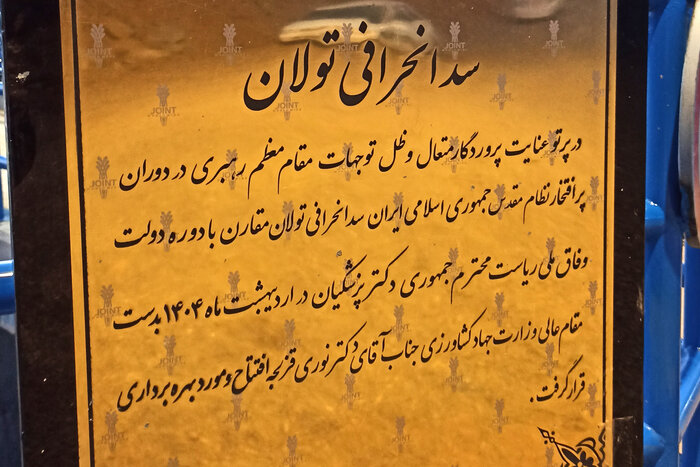 سد انحرافی تولان
در پرتو عنایت پروردگار متعال و ظل توجهات مقام معظم رهبری در دوران
پر افتخار نظام مقدس جمهوری اسلامی ایران سد انحرافی تولان مقارن با دوره دولت
وفاق ملی ریاست محترم جمهوری دکتر پزشکیان در اردیبهشت ماه ۱۴۰۴ بدست
مقام عالی وزارت جهاد کشاورزی جناب آقای دکتر نوری قزلجه افتتاح و مورد بهره برداری
قرار گرفت.
JOINT